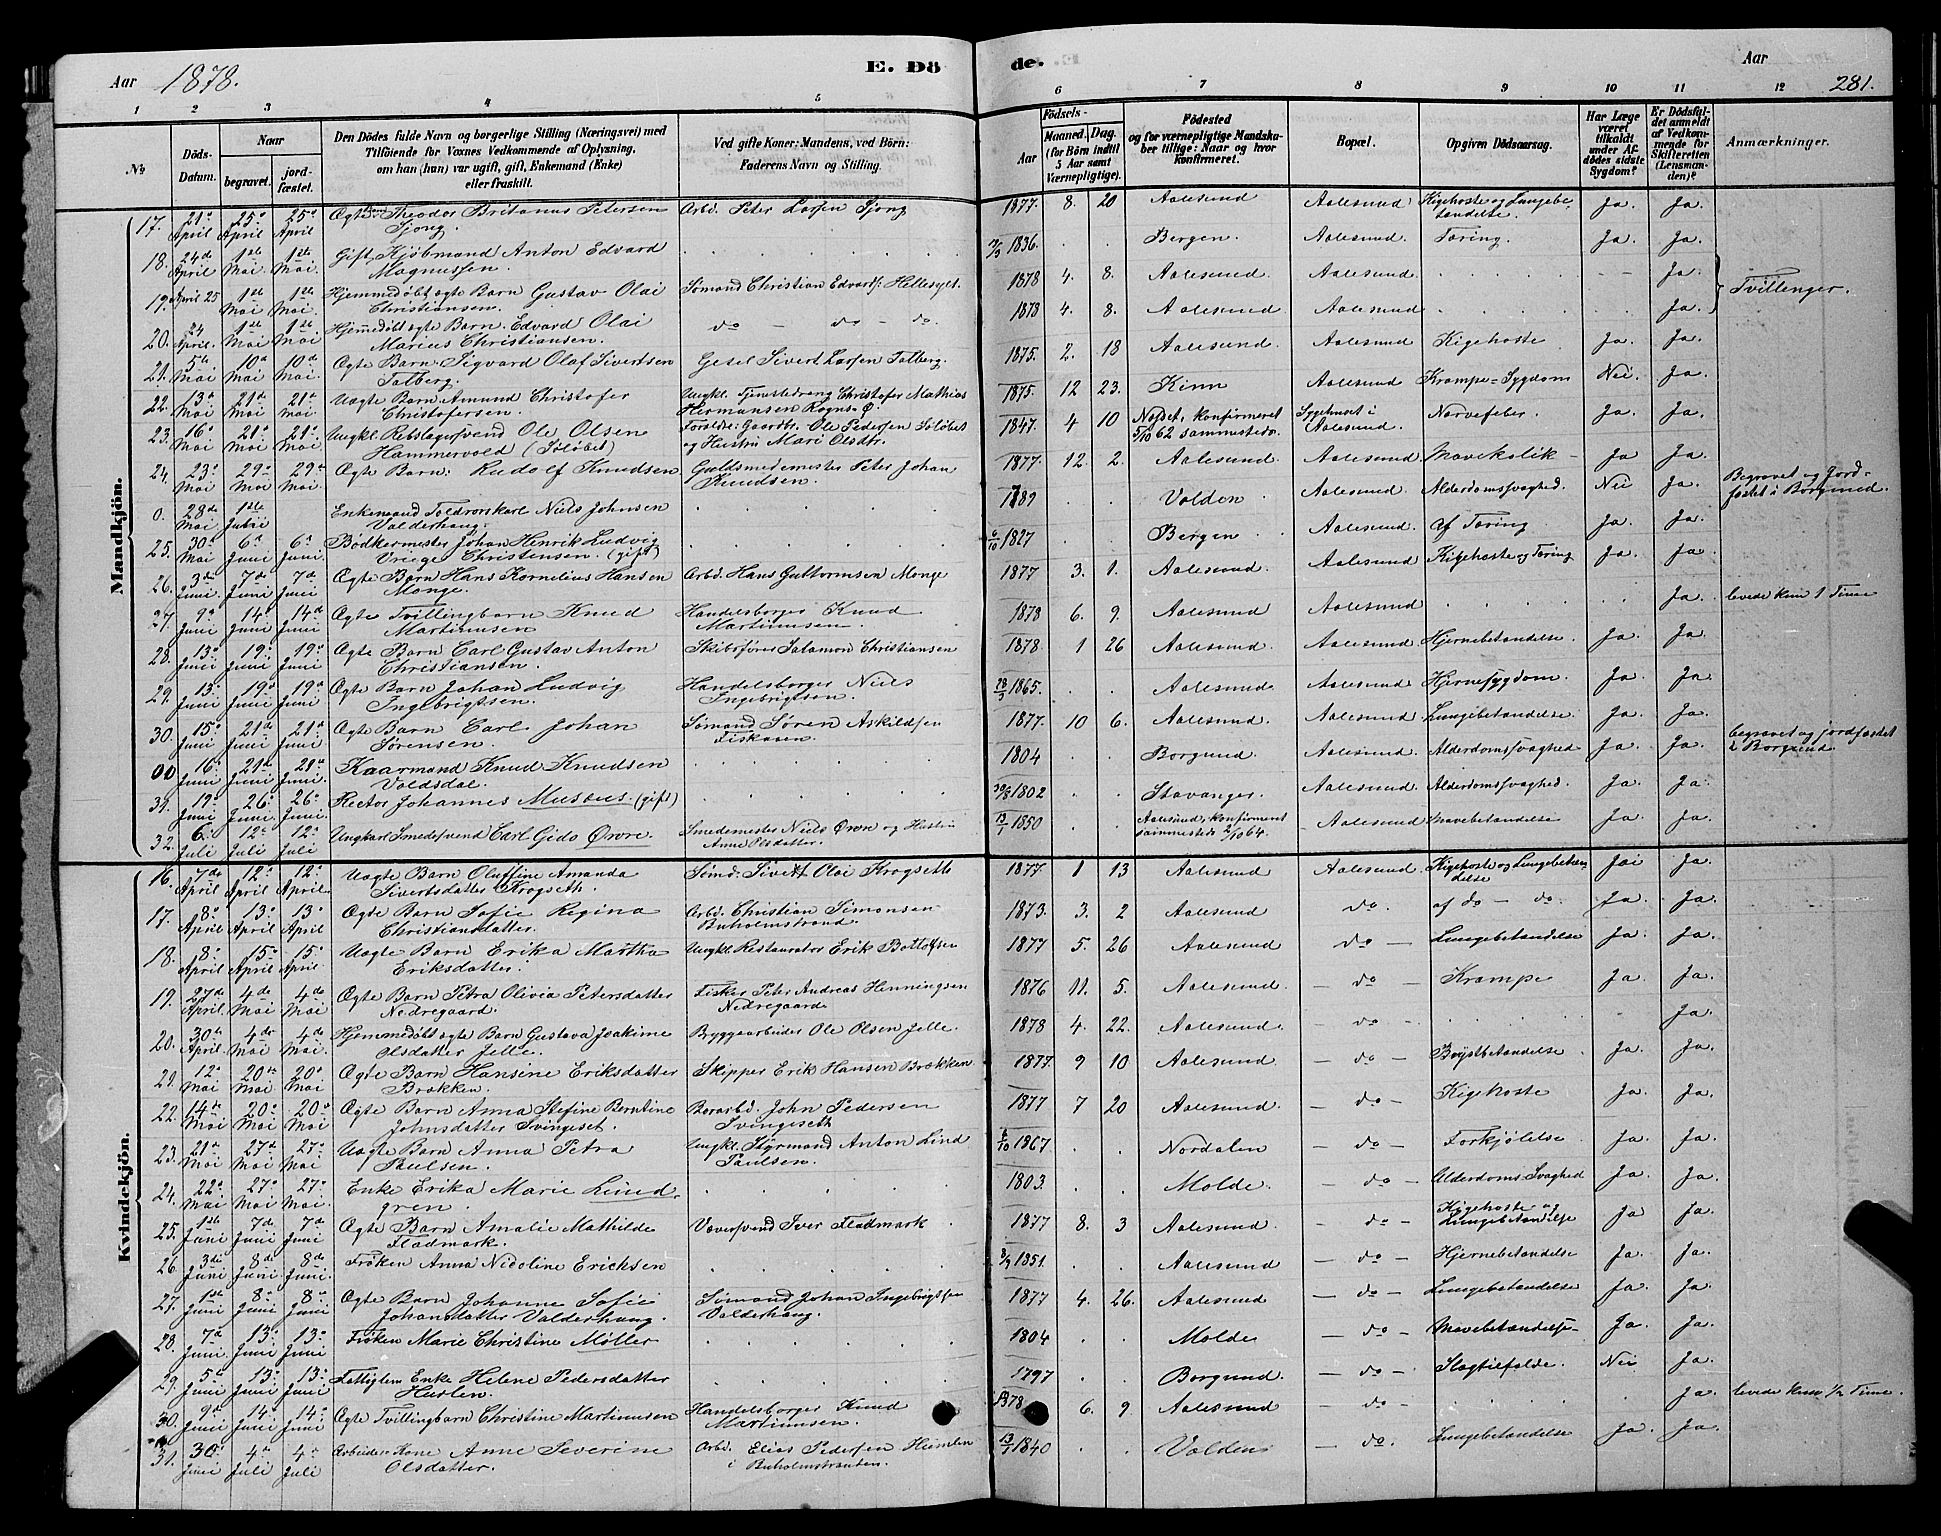 Aar 1878. E. Dö
de. Aar 281.
1 2 3 4 5
6 7 8 9 10 11 12
No
Döds-Datum.
Naar
begravet.
jordfæstet.
Den Dödes fulde Navn og borgerlige Stilling (Næringsvei) med
Tilföiende for Voxnes Vedkommende af Oplysning,
om han (hun) var ugift, gift, Enkemand (Enke)
eller fraskilt.
Ved gifte Koner: Mandens, ved Börn:
Faderens Navn og Stilling.
Födsels-
Aar
Maaned. Dag.
(for Börn indtil
5 Aar samt
Værnepligtige).
Födested
og for værnepligtige Mandskaber
tillige: Naar og hvor
konfirmeret.
Bopæl.
Opgiven Dödsaarsag.
Har Læge
været
tilkaldt
under Afdödes
sidste
Sygdom?
Er Dödsfaldet
anmeldt
af Vedkommende
for
Skifteretten
(Lensmanden)?
Anmærkninger.
Mandkjön.
17. 21de April 25de April 25de April Ægte Barn Theodor Britanus Petersen Tjong Arbd. Peter Larsen Tjong 1877. 8. 20 Aalesund Aalesund Kigehoste og Lungebetændelse. Ja. Ja.
18. 24de April 1ste Mai. 1ste Mai. Gift Kjöbmand Anton Edvard Magnussen 1836. Bergen. Aalesund. Tæring. Ja. Ja.
19. April 25 1ste Mai 1ste Mai. Hjemmedöbt ægte Barn Gustav Olai Christiansen. Sömand Christian Edvards. Hellesylt. 1878 4. 8. Aalesund Aalesund. Ja. Tvillinger.
20. 24 April. 1ste Mai 1ste Mai Hjemmedöbt ægte Barn Edvard Olai Marius Christiansen. do - do - do. 1878 4. 8. Aalesund Aalesund Ja.
21. 5te Mai 10de Mai 10de Mai. Ægte Barn Sigvard Olaf Sivertsen Talberg. Gesel Sivert Larsen Talberg. 1875. 2. 18 Aalesund. Aalesund Kigehoste Ja. Ja.
22. 13de Mai 21de Mai 21de Mai Uægte Barn Amund Christofer Christofersen. Ungkl. Tjenestedreng Christofer Mathias Hermansen Rognsö. 1875. 12 23. Kinn Aalesund Krampe-Sygdom Nei Ja.
23. 16de Mai 21de Mai. 21de Mai. Ungkl. Rebslagersvend Ole Olsen Hammervold Forældr: Gaardbr. Ole Pedersen og Hustru Mari Olsdtr. 1847. 4 10 konfirmeret 5/10 62 sammesteds Sygehuset i Aalesund. Nervefeber. Ja. Ja.
24. 23de Mai 29de Mai 29de Mai Ægte Barn: Rudolf Knudsen Guldsmedemester Peter Johan Knudsen. 1877. 12. 2. Aalesund. Aalesund Mavekolik - Ja Ja.
0. 28de Mai 1ste Juni Enkemand Toldrorskarl Niels Johnsen Valderhaug. 1789 Volden. Aalesund. Alderdomssvaghed. Nei Ja. Begravet og Jordfæstet i Borgund.
25. 30de Mai 6te Juni 6te Juni. Bödkermester Johan Henrik Ludvig Vriege Christensen. (gift) 6/10 1827 Bergen. Aalesund. Af Tæring. Ja. Ja.
26. 3de Juni 7de Juni 7de Juni. Ægte Barn Hans Kornelius Hansen Monge. Arbd. Hans Guttormsen Monge 1877 3. 1. Aalesund. Aalesund Kigehoste og Tæring Ja Ja.
27. 9de Juni 14de Juni 14de Juni Ægte Tvillingbarn Knud Martinussen Handelsborger Knud Martinussen. 1878 6. 9. Aalesund Aalesund Ja. levede kun 1 Time
28. 13de Juni 19de Juni 19de Juni Ægte Barn Carl Gustav Anton Christiansen. Skibsförer Salamon Christiansen 1878. 1 26 Aalesund. Aalesund. Hjernebetændelse. Ja. Ja.
29. 13. Juni 19de Juni 19de Juni Ægte Barn Johan Ludvig Ingebrigtsen Handelsborger Niels Ingebrigtsen. 1865. Aalesund. Aalesund. Hjernesygdom. Ja. Ja.
30. 15de Juni 21de Juni 21de Juni. Ægte Barn Carl Johan Sörensen. Sömand Sören Askildsen 1877. 10 6. Aalesund. Aalesund Lungebetændelse Ja Ja.
00 16de Juni 21de Juni 21de Juni. Kaarmand Knud Knudsen Valdsdal 1804 Borgund Aalesund. Alderdomssvaghed Ja. Ja. begravet og jordfæstet i Borgund
31. 19. Juni 26. Juni 26. Juni Rector Johannes Musæus. (gift) 1802 Stavanger. Aalesund. Alderdomssvaghed. Ja Ja.
32. 6. Juli 12. Juli 12. Juli Ungkarl Smedesvend Carl Gido Örvre. Smedemester Niels Övre og Hustru Anne Olsdatter. 1850 Aalesund, konfirmeret sammesteds 2/10 64. Aalesund Mavebetændelse Ja. Ja.
Kvindekjön.
16. 7de April 12. April 12. April Uægte Barn Oluffine Amanda Sivertsdatter Krogseth. Sömd. Sivert Olai Krogseth 1877. 1 13 Aalesund Aalesund Kigehoste og Lungebetændelse Ja Ja.
17. 8. April 13. April 13 April Ægte Barn Sofie Regina Christiansdatter. Arbd. Christian Simonsen Buholmstrand 1873. 3. 2 Aalesund do. af do - do. Ja. Ja.
18. 8. April. 15. April 15. April. Uægte Barn Erika Martha Eriksdatter. Ungkl. Restauratör Erik Bottolfsen 1877 5. 26 Aalesund do - Lungebetændelse Ja. Ja.
19. 27de April. 4de Mai 4de Mai Ægte Barn Petra Olivia Petersdatter Nedregaard. Fisker Peter Andreas Henningsen Nedregaard 1876 11. 5. Aalesund. - do - Krampe Ja Ja.
20. 30te April. 4de Mai 4de Mai Hjemmedöbt ægte Barn Gustava Joakime Olsdatter Jelle. Bryggearbeider Ole Olsen Jelle. 1878 4. 22. Aalesund. - do - Ja.
21. 12te Mai 20de Mai 20de Mai Ægte Barn Hansine Eriksdatter Brækken. Skipper Erik Hansen Brækken 1877. 9 10 Aalesund. - do - Brystbetændelse Ja. Ja.
22. 14de Mai 20de Mai. 20de Mai. Ægte Barn Anna Stefine Berntine Johnsdatter Svingeset. John Pedersen Svingeseth 1877 7 20 Aalesund. - do - Kigehoste Ja. Ja.
23. 21de Mai 27de Mai 27. Mai Uægte Barn Anna Petra Paulsen. Ungkl. Styrmand Anton Lind Paulsen. 6/10 1867 Nordalen - do - Forkjölelse Ja Ja.
24. 22. Mai 27. Mai 27. Mai. Enke Erika Marie Lindgren. 1803. Molde. - do - Alderdoms Svaghed Ja Ja.
25. 1ste Juni 7de Juni 7de Juni Ægte Barn Amalie Mathilde Fladmark. Væversvend Iver Fladmark 1877 8. 3 Aalesund - do - Kigehoste og Lungebetændelse Ja Ja.
26. 3de Juni 8de Juni 8de Juni. Fröken Anna Nidoline Erichsen 1851. Aalesund - do - Hjernebetændelse Ja. Ja.
27. 1ste Juni 8. Juni 8. Juni Ægte Barn Johanne Sofie Johansdatter Valderhaug. Sömand Johan Ingebrigtsen Valderhaug. 1877 4. 26. Aalesund - do - Lungebetændelse Ja. Ja
28. 7de Juni. 13. Juni 13. Juni Fröken Marie Christine Möller 1804 Molde - do - Mavebetændelse Ja. Ja.
29. 5te Juni 13. Juni 13. Juni Fattiglem Enke Helene Pedersdatter 1797 Borgund. - do - Slagtilfælde. Nei Ja.
30. 9de Juni 14. Juni 14. Juni Ægte Tvillingbarn Christine Martinussen Handelsborger Knud Martinussen. 1878 6. 9 Aalesund - do - Ja. levede kun 1/2 Time.
31. 30. Juni 4. Juli 4. Juli Arbeider Kone Anne Severine Olsdatter. Arbd. Elias Pedersen i Buholmstranden. 1840 Volden - do. Lungebetændelse Ja. Ja.